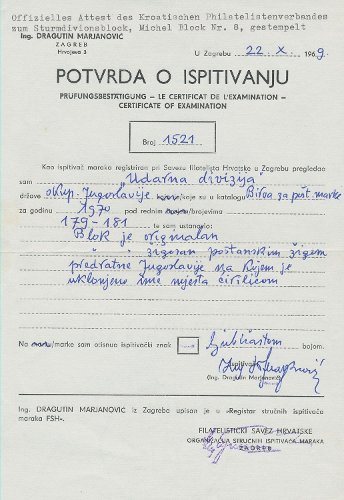 Offizielles Attest des Kroatischen Philatelistenverbandes
zum Sturmdivisionsblock, Michel Block Nr. 8, gestempelt
Ing. DRAGUTIN MARJANOVIĆ
ZAGREB
Hrvojeva 3
U Zagrebu 22. X. 1969.
POTVRDA O ISPITIVANJU
PRÜFUNGSBESTÄTIGUNG — LE CERTIFICAT DE L'EXAMINATION —
CERTIFICATE OF EXAMINATION
Broj 1521
Kao ispitivač maraka registriran pri Savezu filatelista Hrvatske u Zagrebu pregledao
sam „Udarna divizija"
države okup. Jugoslavije koje su u katalogu Biroa za pošt. marke
za godinu 1970 pod rednim brojevima
179-181 te sam ustanovio:
Blok je originalan
žigosan poštanskim žigom
predratne Jugoslavije na kojem je
uklonjeno ime mjesta ćirilicom
Na marke sam otisnuo ispitivački znak ljubičastom bojom.
Ispitivač
(Ing. Dragutin Marjanović)
Ing. DRAGUTIN MARJANOVIĆ iz Zagreba upisan je u »Registar stručnih ispitivača
maraka FSH«.
FILATELISTIČKI SAVEZ HRVATSKE
ORGANIZACIJA STRUČNIH ISPITIVAČA MARAKA
ZAGREB